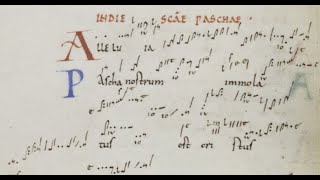 IN DIE SCAE PASCHAE
ALLELUIA
PAscha nostrum immola
tus est